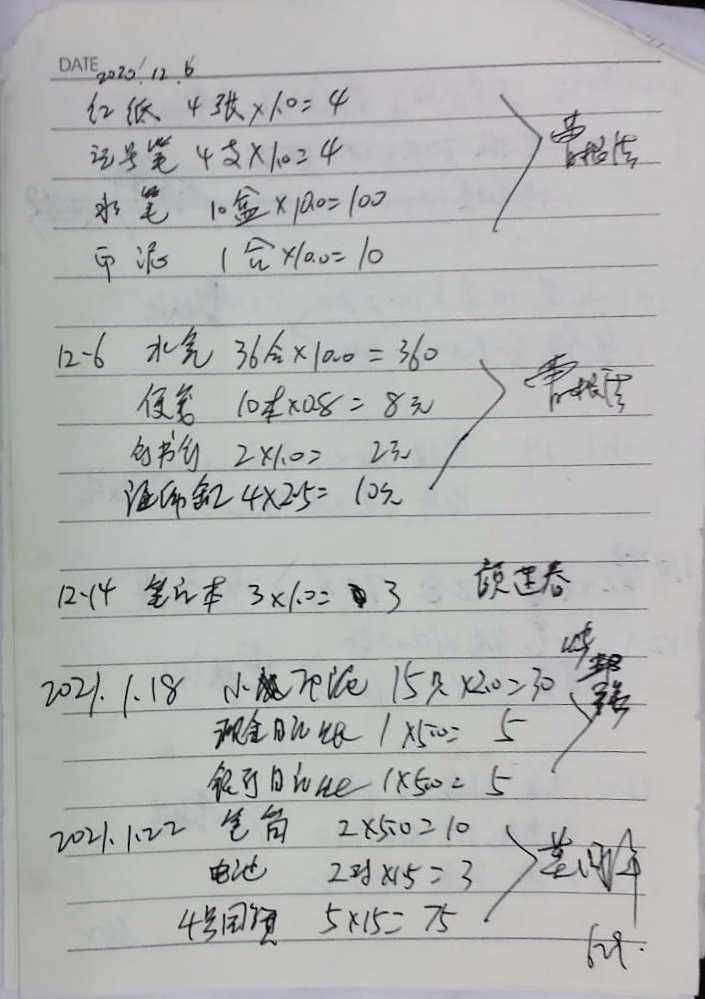 DATE 2020.12.6
红纸 4张×1.0=4
记号笔 4支×1.0=4
水笔 10盒×10.0=100
印泥 1合×10.0=10
12-6 水笔 36合×10.0=360
便笺 10本×0.8=8元
2×1.0= 2元
4×2.5= 10元
12-14 笔记本 3×1.0= 3 顾建春
2021.1.18 小 15只×2.0=30
现金日记账 1×5.0= 5
银行日记账 1×5.0=5
2021.1.22 笔筒 2×5.0=10
电池 2对×1.5=3
4号 5×15=75
629.